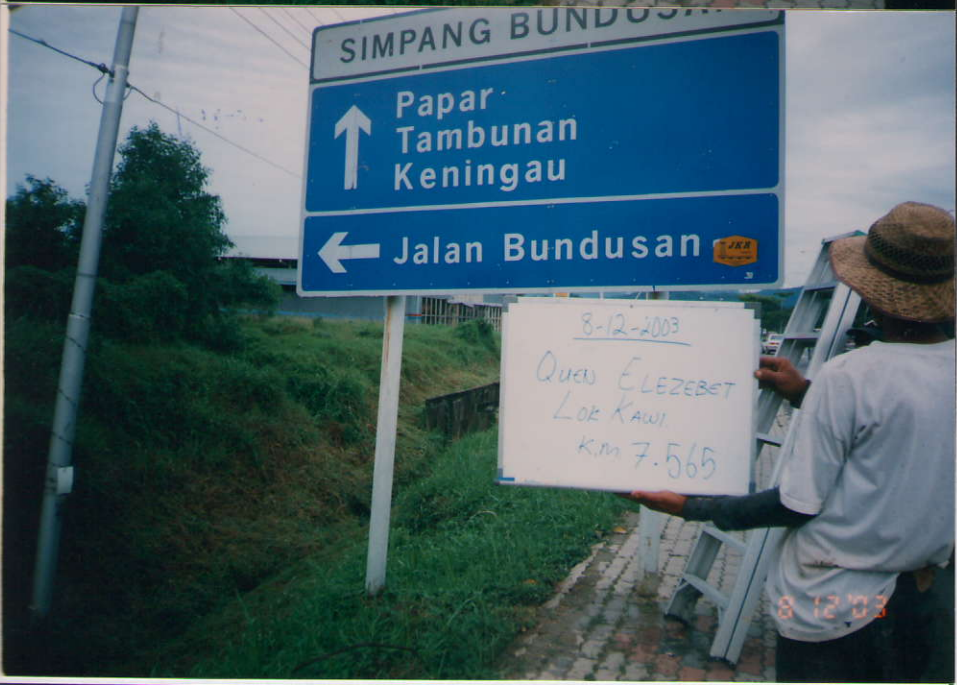 SIMPANG BUNDUSAN
Papar
Tambunan
Keningau
Jalan Bundusan
JKR
8-12-2003
QUEN ELEZEBET
LOK KAWI.
K.M 7.565
8 12 '03